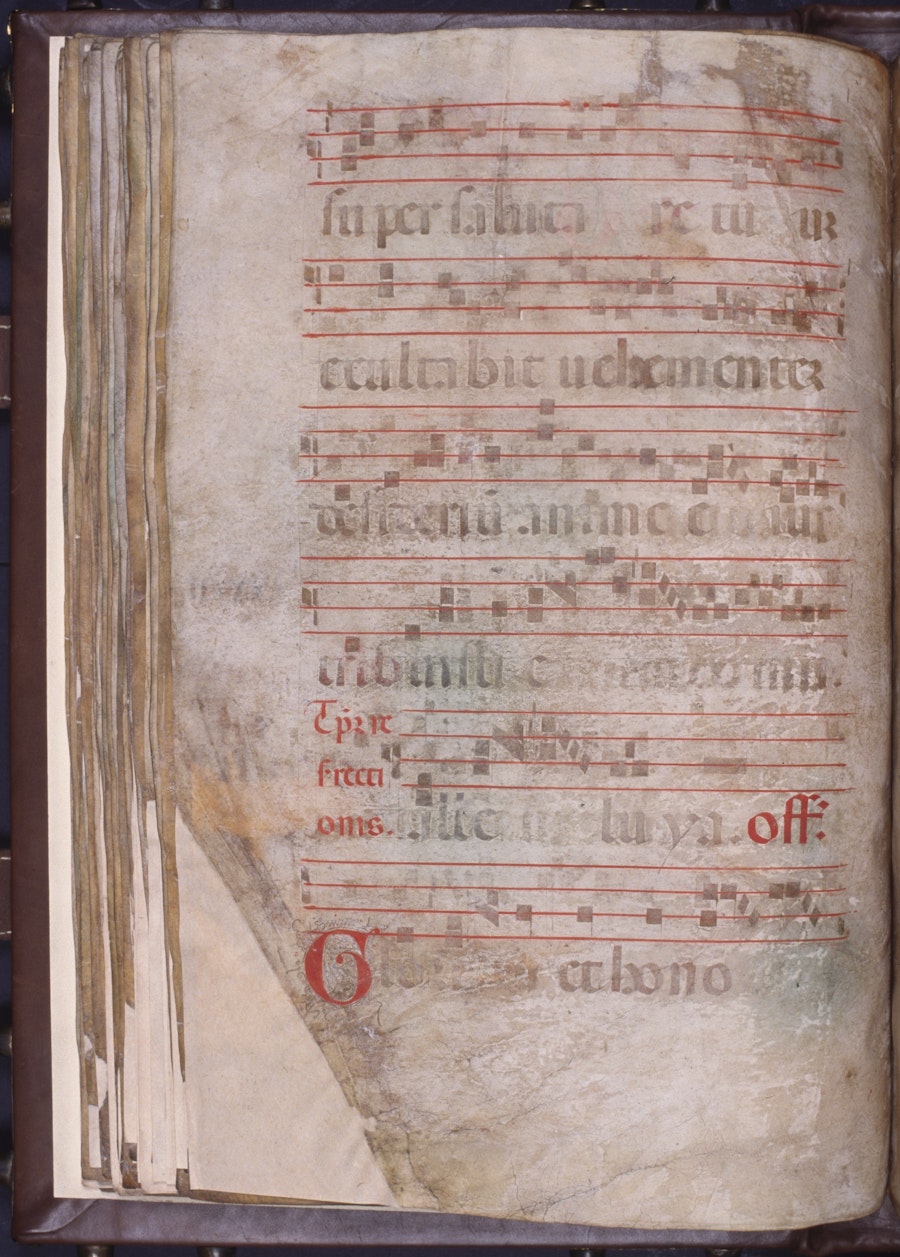 super saluta re tuum
exultabit uehementer
desideriū anime eius
tribuisti ei
T̄pr̄ re
srecti
onis. alle lu ya. off:
Gloria et hono